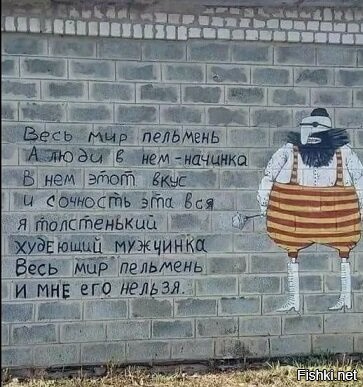 Весь мир пельмень
А люди в нем-начинка
В нем этот вкус
и сочность эта вся
Я толстенький
худеющий мужчинка
Весь мир пельмень
И мне его нельзя.
Fishki.net